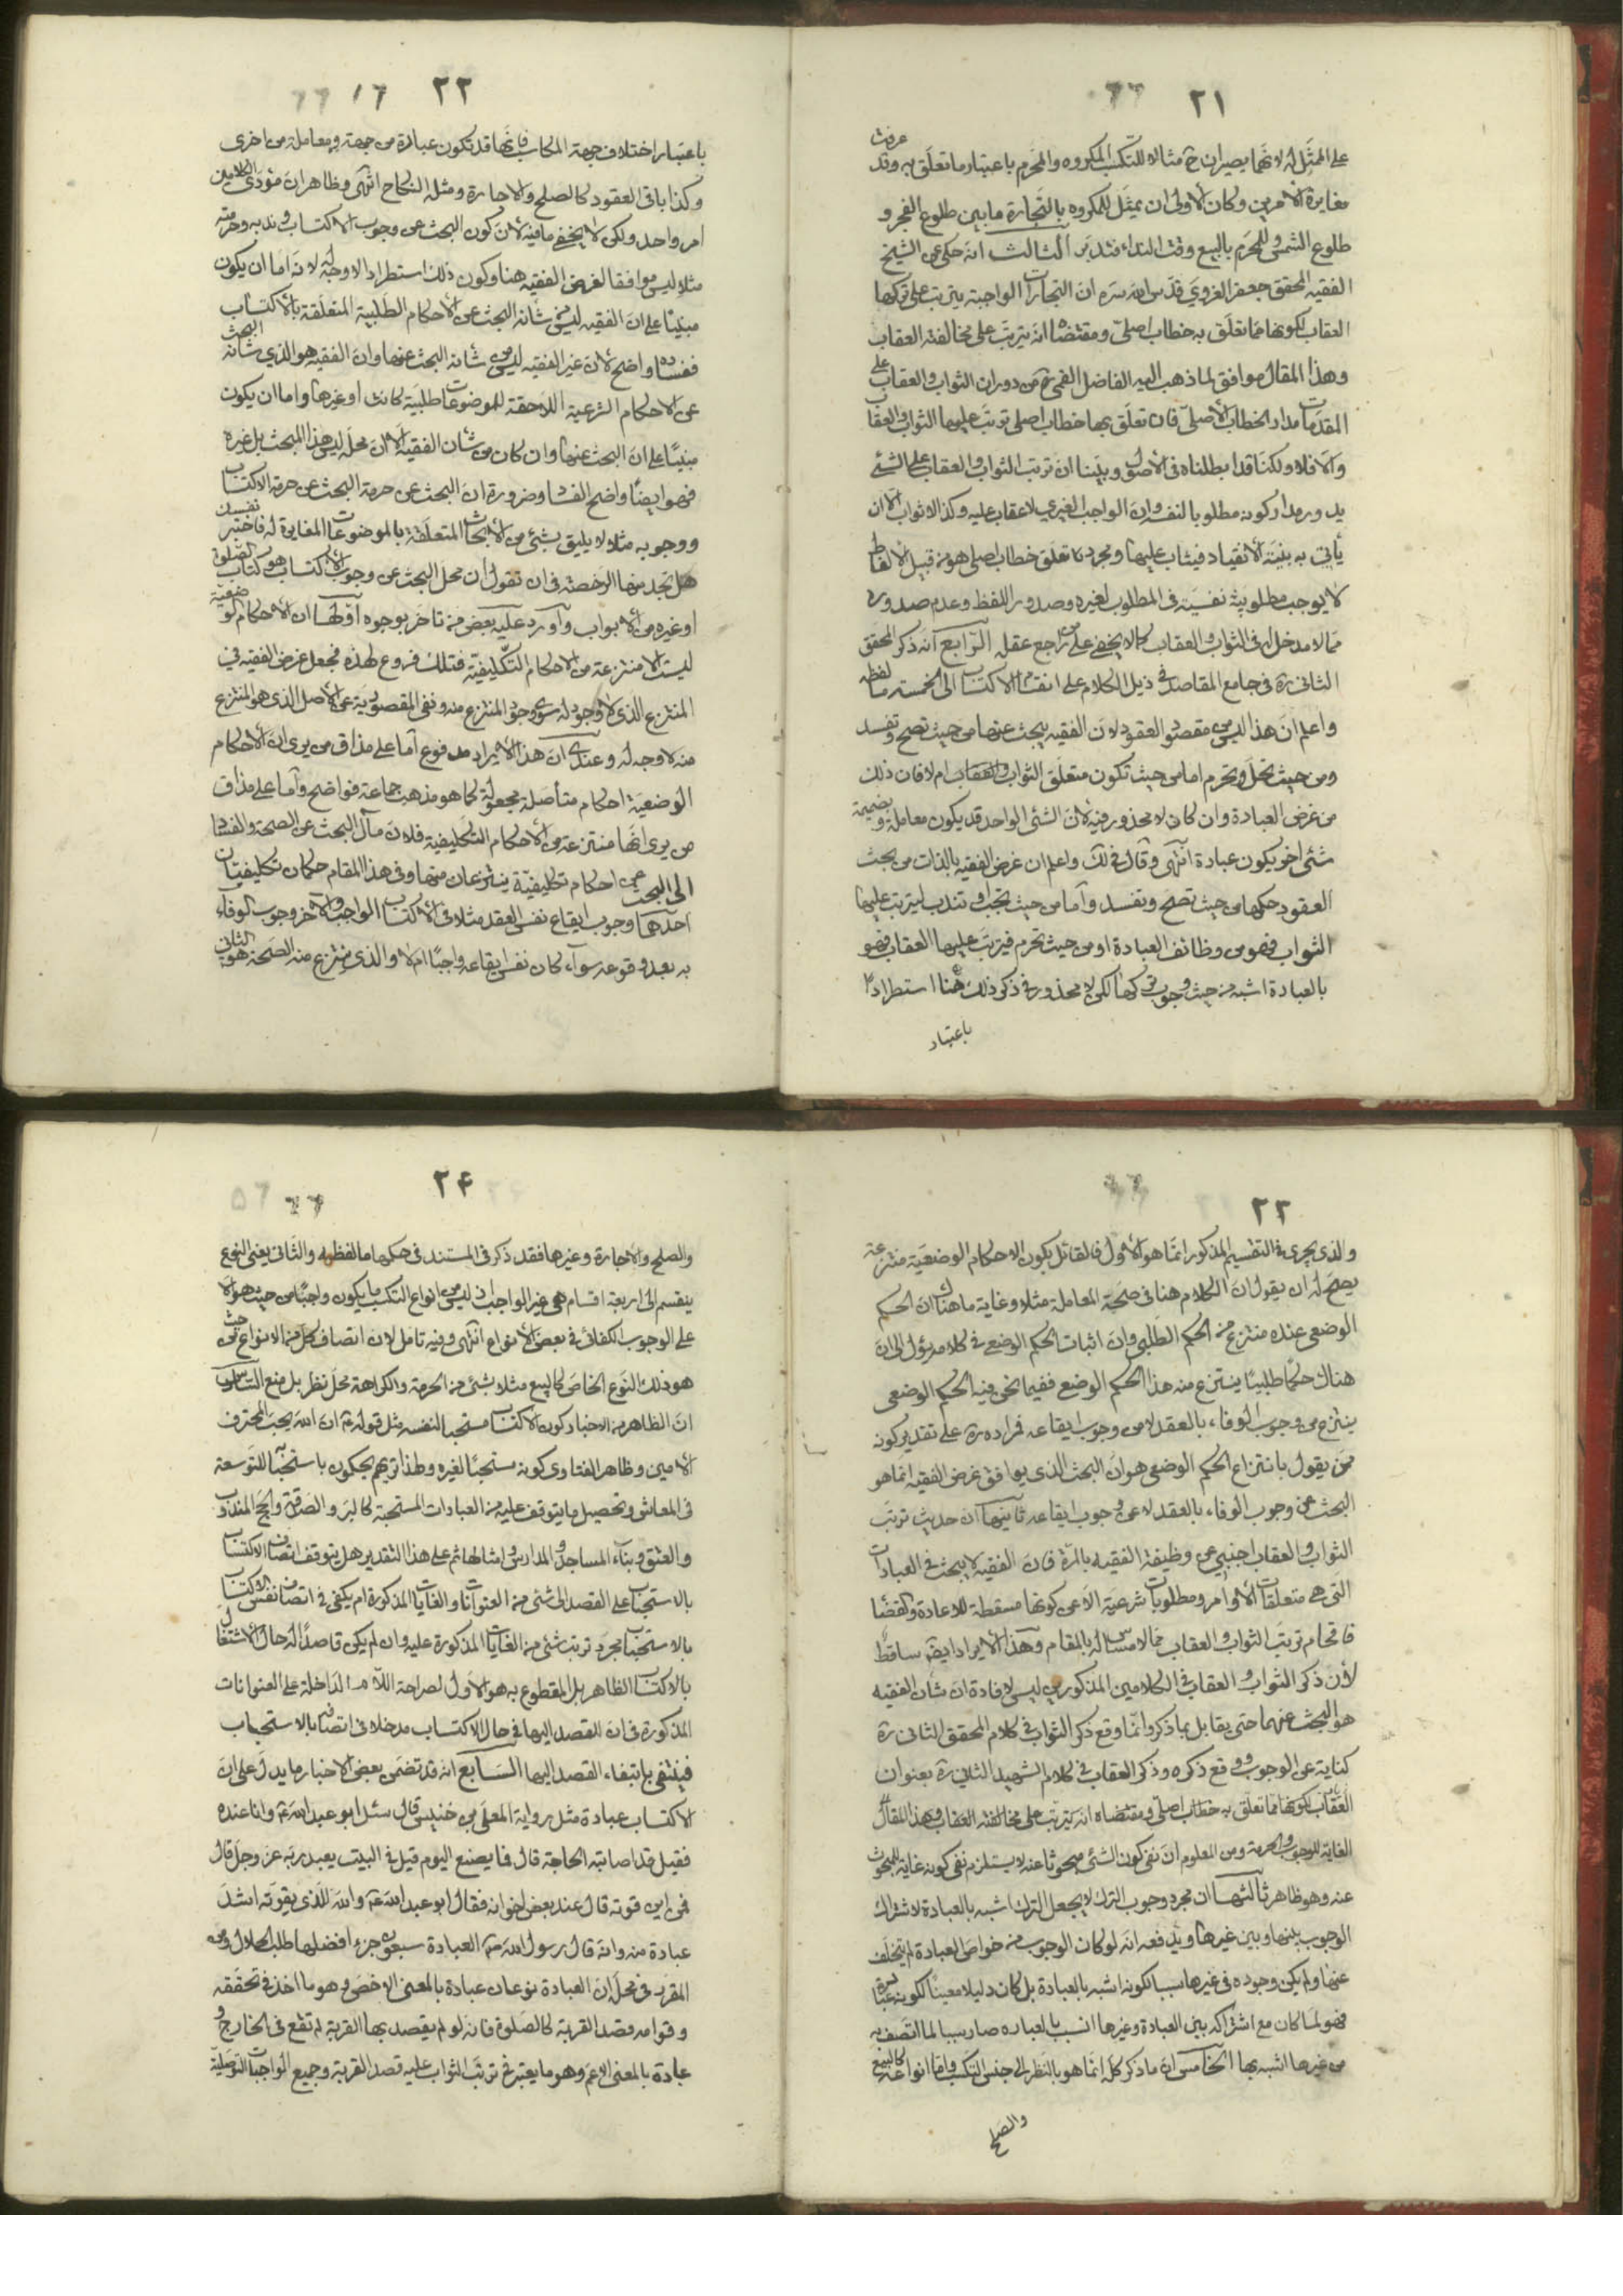 ٢١
على الممثل له لانهما يصيران ح مثالا للتكسب المكروه والمحرم باعتبار ما تعلق به وقد عرفت
مغايرة الامرين وكان الاولى ان يمثل للمكروه بالتجارة ما بين طلوع الفجر و
طلوع الشمس وللمحرم بالبيع وقت النداء فتدبر الثالث انه حكى عن الشيخ
الفقيه المحقق جعفر الغروي قدس الله سره ان التجارات الواجبة يترتب على تركها
العقاب لكونها مما تعلق به خطاب اصلي ومقتضاه انه يترتب على مخالفته العقاب
وهذا المقال موافق لما ذهب اليه الفاضل القمي ره من دوران الثواب والعقاب على
المقدمات مدار الخطاب الاصلي فان تعلق بها خطاب اصلي ترتب عليها الثواب والعقاب
والا فلا ولكنا قد ابطلناه في الاصول وبينا ان ترتب الثواب والعقاب على الشئ
يدور مدار كونه مطلوبا لنفسه وان الواجب الغيري لا عقاب عليه وكذا لا ثواب الا ان
يأتي به بنية الانقياد فيثاب عليها ومجرد تعلق خطاب اصلي هو من قبيل الالفاظ
لا يوجب مطلوبية نفسية في المطلوب لغيره وصدور اللفظ وعدم صدوره
مما لا مدخل له في الثواب والعقاب كما لا يخفى على من راجع عقله الرابع انه ذكر المحقق
الثاني ره في جامع المقاصد في ذيل الكلام على انقسام الاكتساب الى الخمسة ما لفظه
واعلم ان هذا ليس من مقصود العقود لان الفقيه يبحث عنها من حيث تصح وتفسد
ومن حيث تحل وتحرم اما من حيث تكون متعلق الثواب والعقاب ام لا فان ذلك
من غرض العبادة وان كان لا محذور فيه لان الشئ الواحد قد يكون معاملة وبضميمة
شئ اخر يكون عبادة انتهى وقال في لك واعلم ان غرض الفقيه بالذات من بحث
العقود حكمها من حيث تصح وتفسد واما من حيث تجب او تندب ليترتب عليها
الثواب فهو من وظائف العبادة او من حيث تحرم فيترتب عليها العقاب فهو
بالعبادة اشبه من حيث وجوب تركها لكن لا محذور في ذكر ذلك هنا استطرادا
باعتبار
٢٢
باعتبار اختلاف جهة المكاسب فانها قد تكون عبادة من جهة ومعاملة من اخرى
وكذا باقي العقود كالصلح والاجارة ومثل النكاح انتهى وظاهر ان مؤدى الكلامين
امر واحد ولكن لا يخفى ما فيه لان كون البحث عن وجوب الاكتساب وندبه وحرمته
مثلا ليس موافقا لغرض الفقيه هنا وكون ذلك استطرادا لا وجه له لانه اما ان يكون
مبنيا على ان الفقيه ليس من شانه البحث عن الاحكام الطلبية المتعلقة بالاكتساب
ففساده واضح لان غير الفقيه ليس من شانه البحث عنها وان الفقيه هو الذي شانه البحث
عن الاحكام الشرعية اللاحقة للموضوعات طلبية كانت او غيرها واما ان يكون
مبنيا على ان البحث عنها وان كان من شأن الفقيه الا ان محله ليس هذا المبحث بل غيره
فهو ايضا واضح الفساد وضرورة ان البحث عن حرمة الاكتساب
ووجوبه مثلا لا يليق بشئ من الابحاث المتعلقة بالموضوعات المغايرة له فاختبر نفسك
هل تجد منها الرخصة في ان تقول ان محل البحث عن وجوب الاكتساب هو كتاب الصلوة
او غيره من الابواب واورد عليه بعض من تاخر بوجوه اولها ان الاحكام الوضعية
ليست الا منتزعة من الاحكام التكليفية فتلك فروع لهذه فجعل غرض الفقيه في
المنتزع الذي لا وجود له سوى وجود المنتزع منه ونفي المقصودية عن الاصل الذي هو المنتزع
منه لا وجه له وعندي ان هذا الايراد مدفوع اما على مذاق من يرى ان الاحكام
الوضعية احكام متأصلة مجعولة كما هو مذهب جماعة فواضح واما على مذاق
من يرى انها منتزعة من الاحكام التكليفية فلان مآل البحث عن الصحة والفساد
الى البحث عن احكام تكليفية ينتزعان منها وفي هذا المقام حكمان تكليفيان
احدهما وجوب ايقاع نفس العقد مثلا في الاكتساب الواجب والآخر وجوب الوفاء
به بعد وقوعه سواء كان نفس ايقاعه واجبا ام لا والذي ينتزع منه الصحة هو الثاني
٢٣
والذي يجري في التقسيم المذكور انما هو الاول فالقائل بكون الاحكام الوضعية منتزعة
يصح له ان يقول ان الكلام هنا في صحة المعاملة مثلا وغاية ما هناك ان الحكم
الوضعي عنده منتزع من الحكم الطلبي وان اثبات الحكم الوضعي في كلامه يؤل الى ان
هناك حكما طلبيا ينتزع منه هذا الحكم الوضعي ففيما نحن فيه الحكم الوضعي
ينتزع من وجوب الوفاء بالعقد لا من وجوب ايقاعه فمراده ره على تقدير كونه
ممن يقول بانتزاع الحكم الوضعي هو ان البحث الذي يوافق غرض الفقيه انما هو
البحث عن وجوب الوفاء بالعقد لا عن وجوب ايقاعه ثانيها ان حديث ترتب
الثواب والعقاب اجنبي عن وظيفة الفقيه بالمرة فان الفقيه لا يبحث في العبادات
التي هي متعلقات الاوامر ومطلوبات شرعية الا عن كونها مسقطة للاعادة والقضاء
فاقحام ترتب الثواب والعقاب مما لا مساس له بالمقام وهذا الايراد ايضا ساقط
لان ذكر الثواب والعقاب في الكلامين المذكورين ليس لافادة ان شأن الفقيه
هو البحث عنهما حتى يقابل بما ذكر وانما وقع ذكر الثواب في كلام المحقق الثاني ره
كناية عن الوجوب ووقع ذكره وذكر العقاب في كلام الشهيد الثاني ره بعنوان
العقاب لكونها مما تعلق به خطاب اصلي ومقتضاه انه يترتب على مخالفته العقاب وهذا المقال
الغاية للوجوب والحرمة ومن المعلوم ان نفي كون الشئ مبحوثا عنه لا يستلزم نفي كونه غاية للمبحوث
عنه وهو ظاهر ثالثها ان مجرد وجوب الترك لا يجعل الترك اشبه بالعبادة لاشتراك
الوجوب بينها وبين غيرها ويدفعه انه لو كان الوجوب من خواص العبادة لم يتخلف
عنها ولم يكن وجوده في غيرها سببا لكونه اشبه بالعبادة بل كان دليلا معينا لكونه عبادة
فهو لما كان مع اشتراكه بين العبادة وغيرها انسب بالعبادة صار سببا لما اتصف به
من غيرها اشبه بها الخامس ان ما ذكر كله انما هو بالنظر الى جنس التكسب واما انواعه كالبيع
والصلح
٢۴
والصلح والاجارة وغيرها فقد ذكر في المستند في حكمها ما لفظه والثاني يعني النوع
ينقسم الى اربعة اقسام هي غير الواجب اذ ليس من انواع التكسب ما يكون واجبا من حيث هو الا
على الوجوب الكفائي في بعض الانواع انتهى وفيه تامل لان اتصاف كل من الانواع من حيث
هو ذلك النوع الخاص كالبيع مثلا بشئ من الحرمة والكراهة محل نظر بل منع السادس
ان الظاهر من الاخبار كون الاكتساب مستحبا لنفسه مثل قوله ع ان الله يحب المحترف
الامين وظاهر الفتاوى كونه مستحبا لغيره ولهذا تريهم يحكمون باستحبابه للتوسعة
في المعاش وتحصيل ما يتوقف عليه من العبادات المستحبة كالبر والصدقة والحج المندوب
والعتق وبناء المساجد والمدارس وامثالها ثم على هذا التقدير هل يتوقف اتصاف الاكتساب
بالاستحباب على القصد الى شئ من العنوانات والغايات المذكورة ام يكفي في اتصاف نفس الاكتساب
بالاستحباب مجرد ترتب شئ من الغايات المذكورة عليه وان لم يكن قاصدا له حال الاشتغال
بالاكتساب الظاهر بل المقطوع به هو الاول لصراحة اللام الداخلة على العنوانات
المذكورة في ان للقصد اليها في حال الاكتساب مدخلا في اتصافه بالاستحباب
فينتفي بانتفاء القصد اليها السابع انه قد تضمن بعض الاخبار ما يدل على ان
الاكتساب عبادة مثل رواية المعلى بن خنيس قال سئل ابو عبد الله ع وانا عنده
فقيل قد اصابته الحاجة قال فما يصنع اليوم قيل في البيت يعبد ربه عز وجل قال
فمن اين قوته قال عند بعض اخوانه فقال ابو عبد الله ع والله للذي يقوته اشد
عبادة منه وانه قال رسول الله ص العبادة سبعون جزء افضلها طلب الحلال ومن
المقرر في محله ان العبادة نوعان عبادة بالمعنى الاخص وهو ما اخذ في تحققه
وقوامه قصد القربة كالصلوة فانه لو لم يقصد بها القربة لم تقع في الخارج و
عبادة بالمعنى الاعم وهو ما يعتبر في ترتب الثواب عليه قصد القربة وجميع الواجبات التوصلية